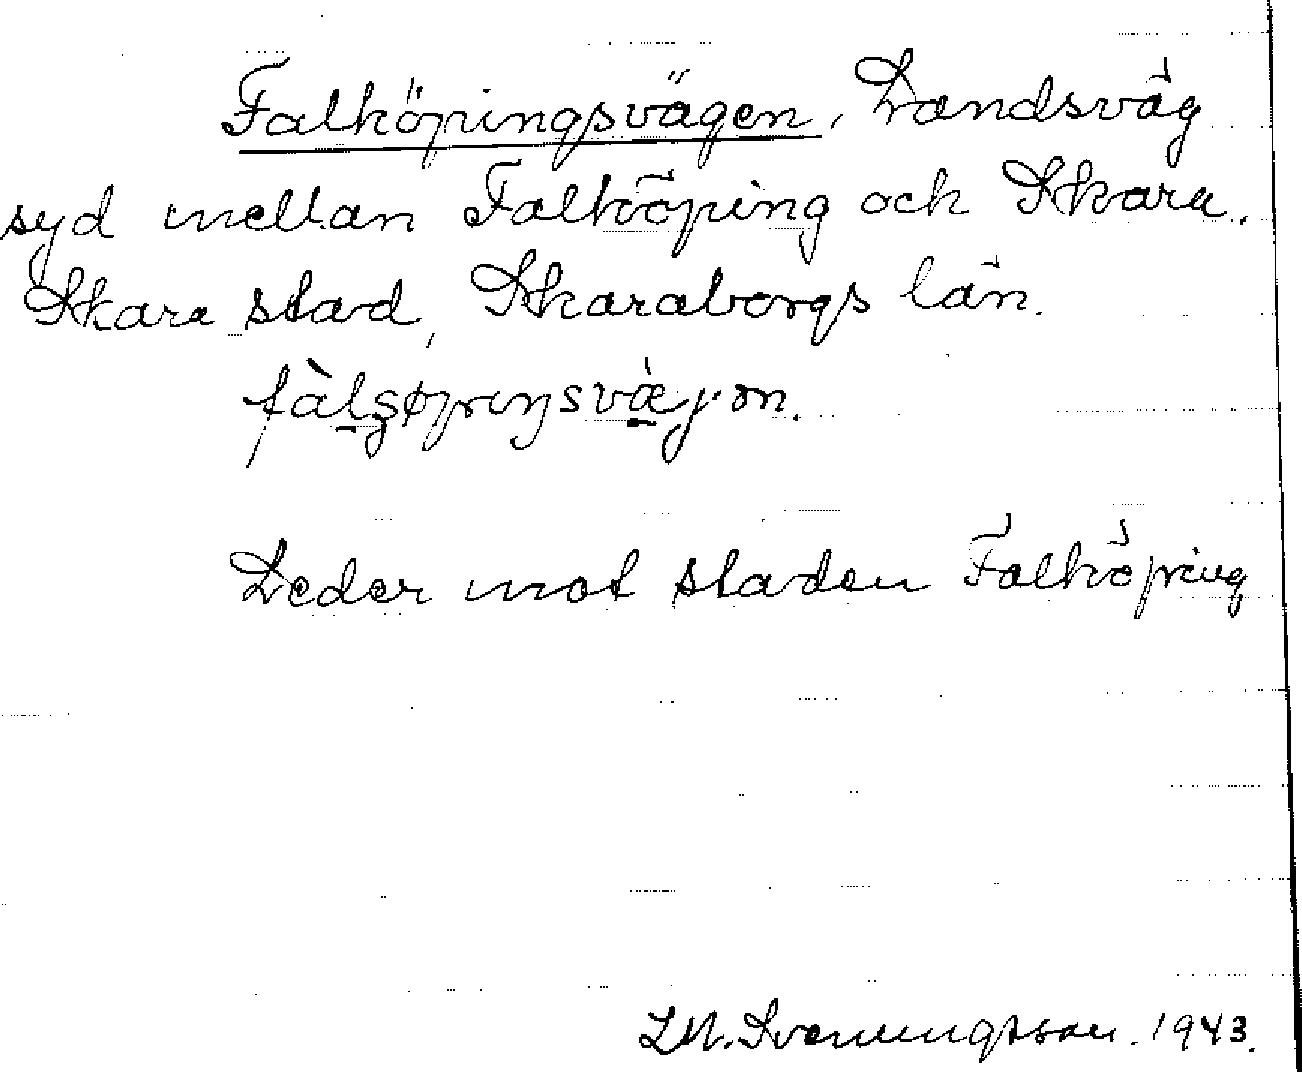 Falköpingsvägen, Landsväg
syd mellan Falköping och Skara.
Skara stad, Skaraborgs län.
Leder mot staden Falköping
Svenungsson. 1943.